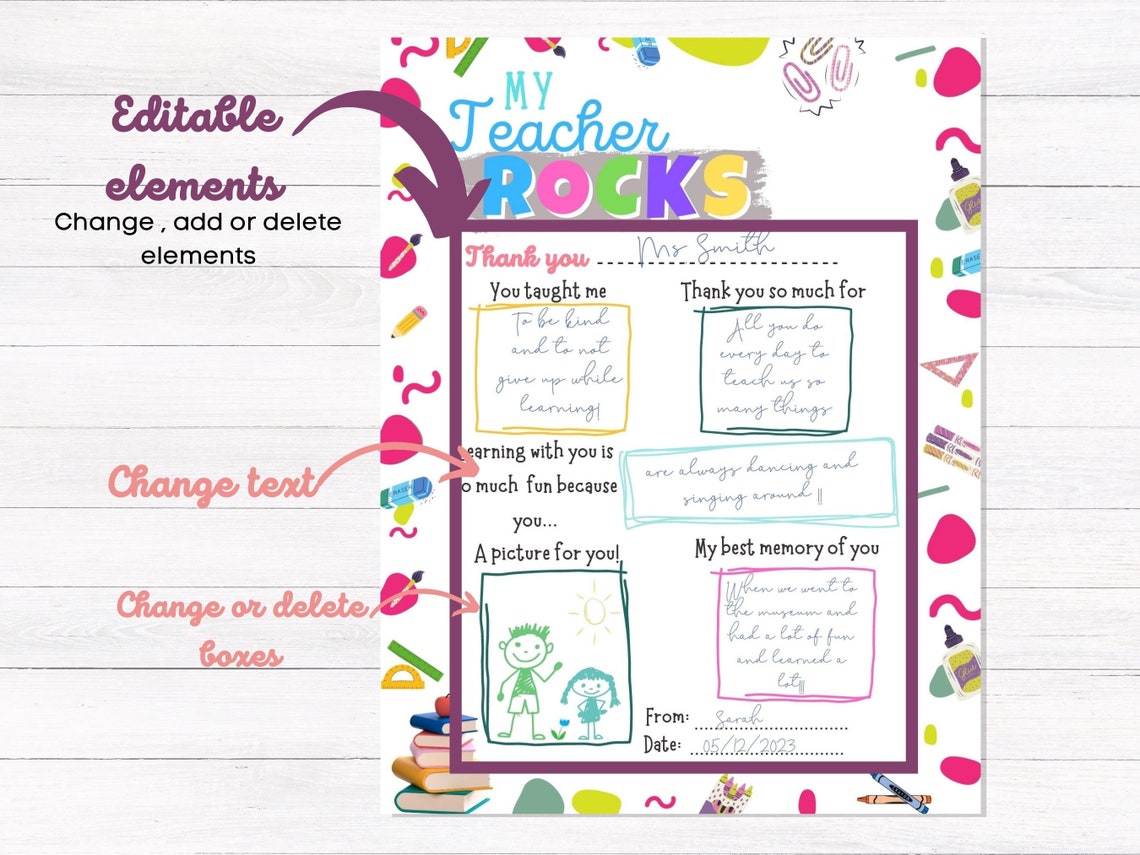 Editable
elements
Change , add or delete
elements
MY
Teacher
ROCKS
Thank you Ms Smith
You taught me
To be kind
and to not
give up while
learning!
Thank you so much for
All you do
every day to
teach us so
many things
earning with you is
o much fun because
you...
are always dancing and
singing around !!
Change text
A picture for you!
My best memory of you
When we went to
the museum and
had a lot of fun
and learned a
lot!!!
Change or delete
boxes
From: Sarah
Date: 05/12/2023
ERASER
ERASER
Glue
Glue